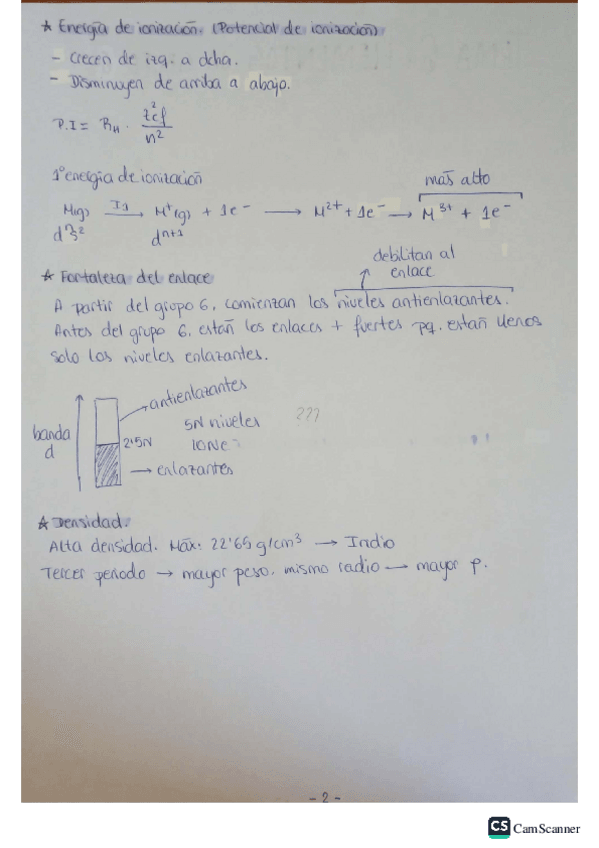 ★ Energía de ionización. (Potencial de ionización)
- Crecen de izq. a dcha.
- Disminuyen de arriba a abajo.
P.I = R_H · Z²ef / n²
1º energía de ionización
más alto
M(g) —I1→ M⁺(g) + 1e⁻ → M²⁺ + 1e⁻ → M³⁺ + 1e⁻
dⁿ⁺¹
debilitan al
enlace
★ Fortaleza del enlace
A partir del grupo 6, comienzan los niveles antienlazantes.
Antes del grupo 6, están los enlaces + fuertes pq. están llenos
solo los niveles enlazantes.
antienlazantes
5N niveles ???
banda
d
2'5N
10N e⁻
enlazantes
★ Densidad.
Alta densidad. Máx: 22'65 g/cm³ → Iridio
Tercer periodo → mayor peso, mismo radio → mayor ρ.
- 2 -
CS CamScanner